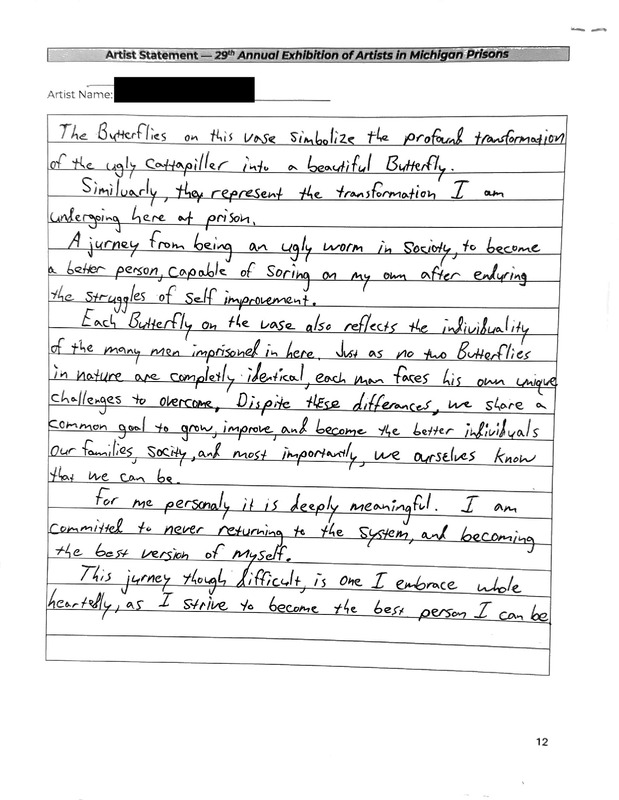 Artist Statement — 29th Annual Exhibition of Artists in Michigan Prisons
Artist Name:
The Butterflies on this vase simbolize the profound transformation
of the ugly Cattapiller into a beautiful Butterfly.
Similuarly, they represent the transformation I am
undergoing here at prison.
A jurney from being an ugly worm in Socioty, to become
a better person, capable of Soring on my own after enduring
the struggles of self improvement.
Each Butterfly on the vase also reflects the individuality
of the many men imprisoned in here. Just as no two Butterflies
in nature are completly identical, each man faces his own unique
challenges to overcome. Dispite thEse differances, we share a
common goal to grow, improve, and become the better individuals
our families, Socity, and most importantly, we ourselves know
that we can be.
For me personaly it is deeply meaningful. I am
committed to never returning to the system, and becoming
the best version of myself.
This jurney though difficult, is one I embrace whole
heartedly, as I strive to become the best person I can be
12